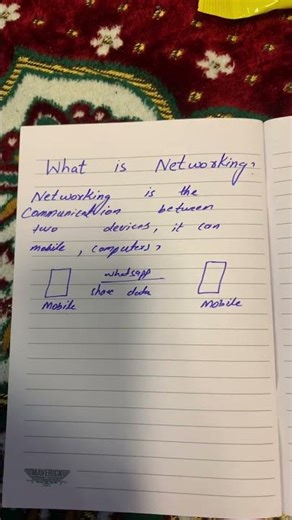 What is Networking?
Networking is the
Communication between
two devices, it can
mobile, computers?
whatsapp
share data
Mobile
Mobile
MAVERICK